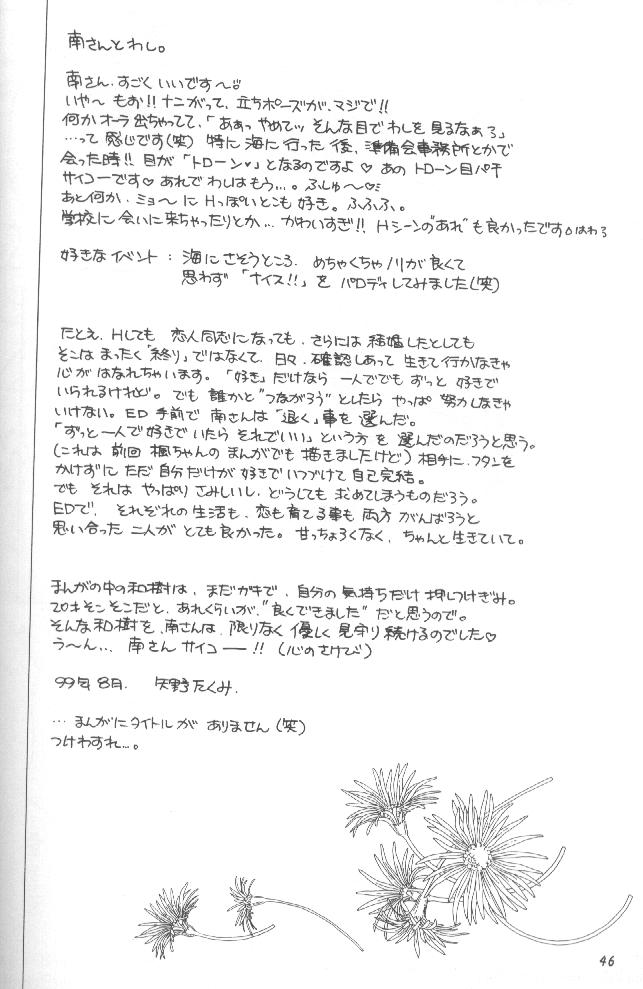 南さんとわし。
南さん、すごくいいです〜
いや〜もお!! ナニがって、立ちポーズが、マジで!!
何かオーラ出ちゃってて、「ああっ やめてッ そんな目でわしを見るなぁろ」
…って感じです(笑) 特に海に行った後、準備会事務所とかで
会った時!! 目が「トローン♥」となるのですよ♡ あのトローン目パチ
サイコーです♡ あれでわしはもう…。ふしゅ〜♡
あと何か、ミョ〜にHっぽいとこも好き。ふふふ、。
学校に会いに来ちゃったりとか… かわいすぎ!! Hシーンの"あれ"も良かったです
好きなイベント : 海にさそうところ、めちゃくちゃノリが良くて
思わず「ナイス!!」をパロディしてみました(笑)
たとえ、Hしても 恋人同志になっても、さらには結婚したとしても
そこはまったく「終り」ではなくて、日々、確認しあって生きて行かなきゃ
心がはなれちゃいます。「好き」だけなら一人ででもずっと好きで
いられるけれど。でも誰かと"つながろう"としたらやっぱ努力しなきゃ
いけない。ED手前で南さんは「退く」事を選んだ。
「ずっと一人で好きでいたらそれでいい」という方を選んだのだろうと思う。
(これは前回楓ちゃんのまんがでも描きましたけど) 相手に、フタンを
かけずにただ自分だけが好きでいつづけて自己完結。
でもそれはやっぱりさみしいし、どうしても求めてしまうものだろう。
EDで、それぞれの生活も、恋も育てる事も両方がんばろうと
思い合った二人がとても良かった。甘っちょろくなく、ちゃんと生きていて。
まんがの中の和樹は、まだガキで、自分の気持ちだけ押しつけぎみ。
20才そこそこだと、あれくらいが、"良くできました"だと思うので。
そんな和樹を、南さんは、限りなく優しく見守り続けるのでした♡
う〜ん… 南さんサイコー──!! (心のさけび)
99年8月. 矢野たくみ.
… まんがにタイトルがありません(笑)
つけわすれ…。
46